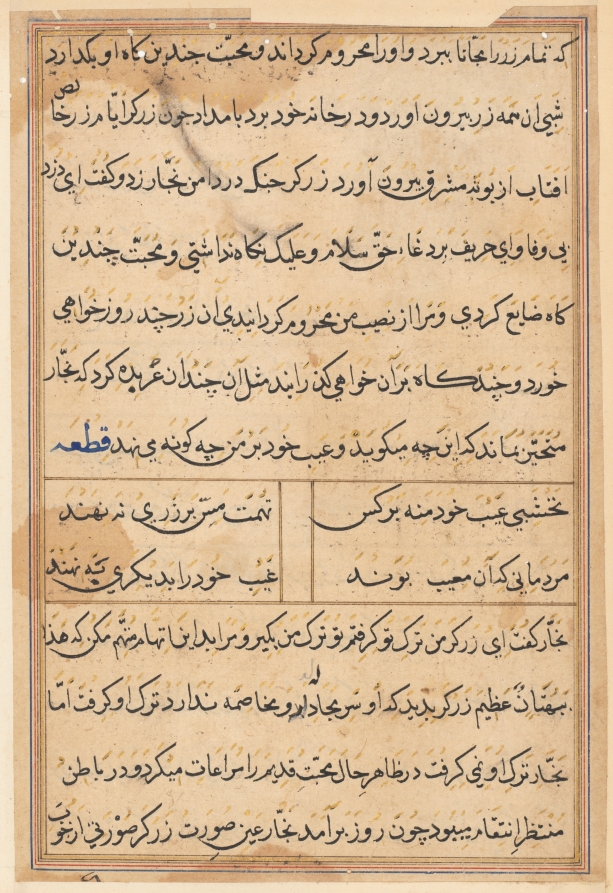 که تمام زر را مجّانا ببرد و او را محروم کرداند و محبّت چندین کاه او بکذارد
شبی ان همه زر بیرون اورد و در خانه خود برد بامداد چون زرکر ایّام زر خالص
افتاب از بوته مشرق بیرون آورد زرکر جنک در دامن نجّار زد و کفت ای دزد
بی وفا و ای حریف بر دغاء حقّ سلام و علیک نکاه نداشتی و محبّت چندین
کاه ضایع کردی و مرا از نصیب من محروم کردانیدی آن زر چند روز خواهی
خورد و چند کاه بر آن خواهی کذرانید مثل آن چندان عربده کرد که نجّار
متحیّر بماند که این چه میکوید و عیب خود بر من چه کونه می نهد قطعه
نخشبی عیب خود منه بر کس
تهمت مسّ بر زری نه نهند
مردمانی که آن معیب بوند
عیب خود را بدیکری به نهند
نجّار کفت ای زرکر من ترک تو کرفتم تو ترک من بکیر و مرا بدین اتهام متّهم مکن که هذا
بهتانٌ عظیم زرکر بدید که او سر مجادله و مخاصمه ندارد ترک او کرفت امّا
نجّار ترک او نمی کرفت در ظاهر حال محبّت قدیم را مراعات میکرد و در باطن
منتظر انتقام میبود چون روز برآمد نجّار عین صورت زرکر صورتی از چوب